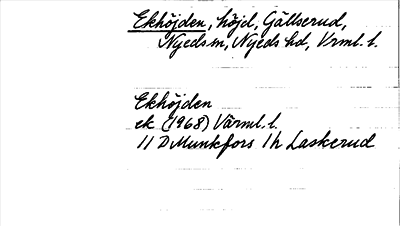 Ekhöjden, höjd, Gällserud,
Nyeds sn, Nyeds hd, Vrml. l.
Ekhöjden
ek (1968) Värml. l.
11 D Munkfors 1h Laskerud